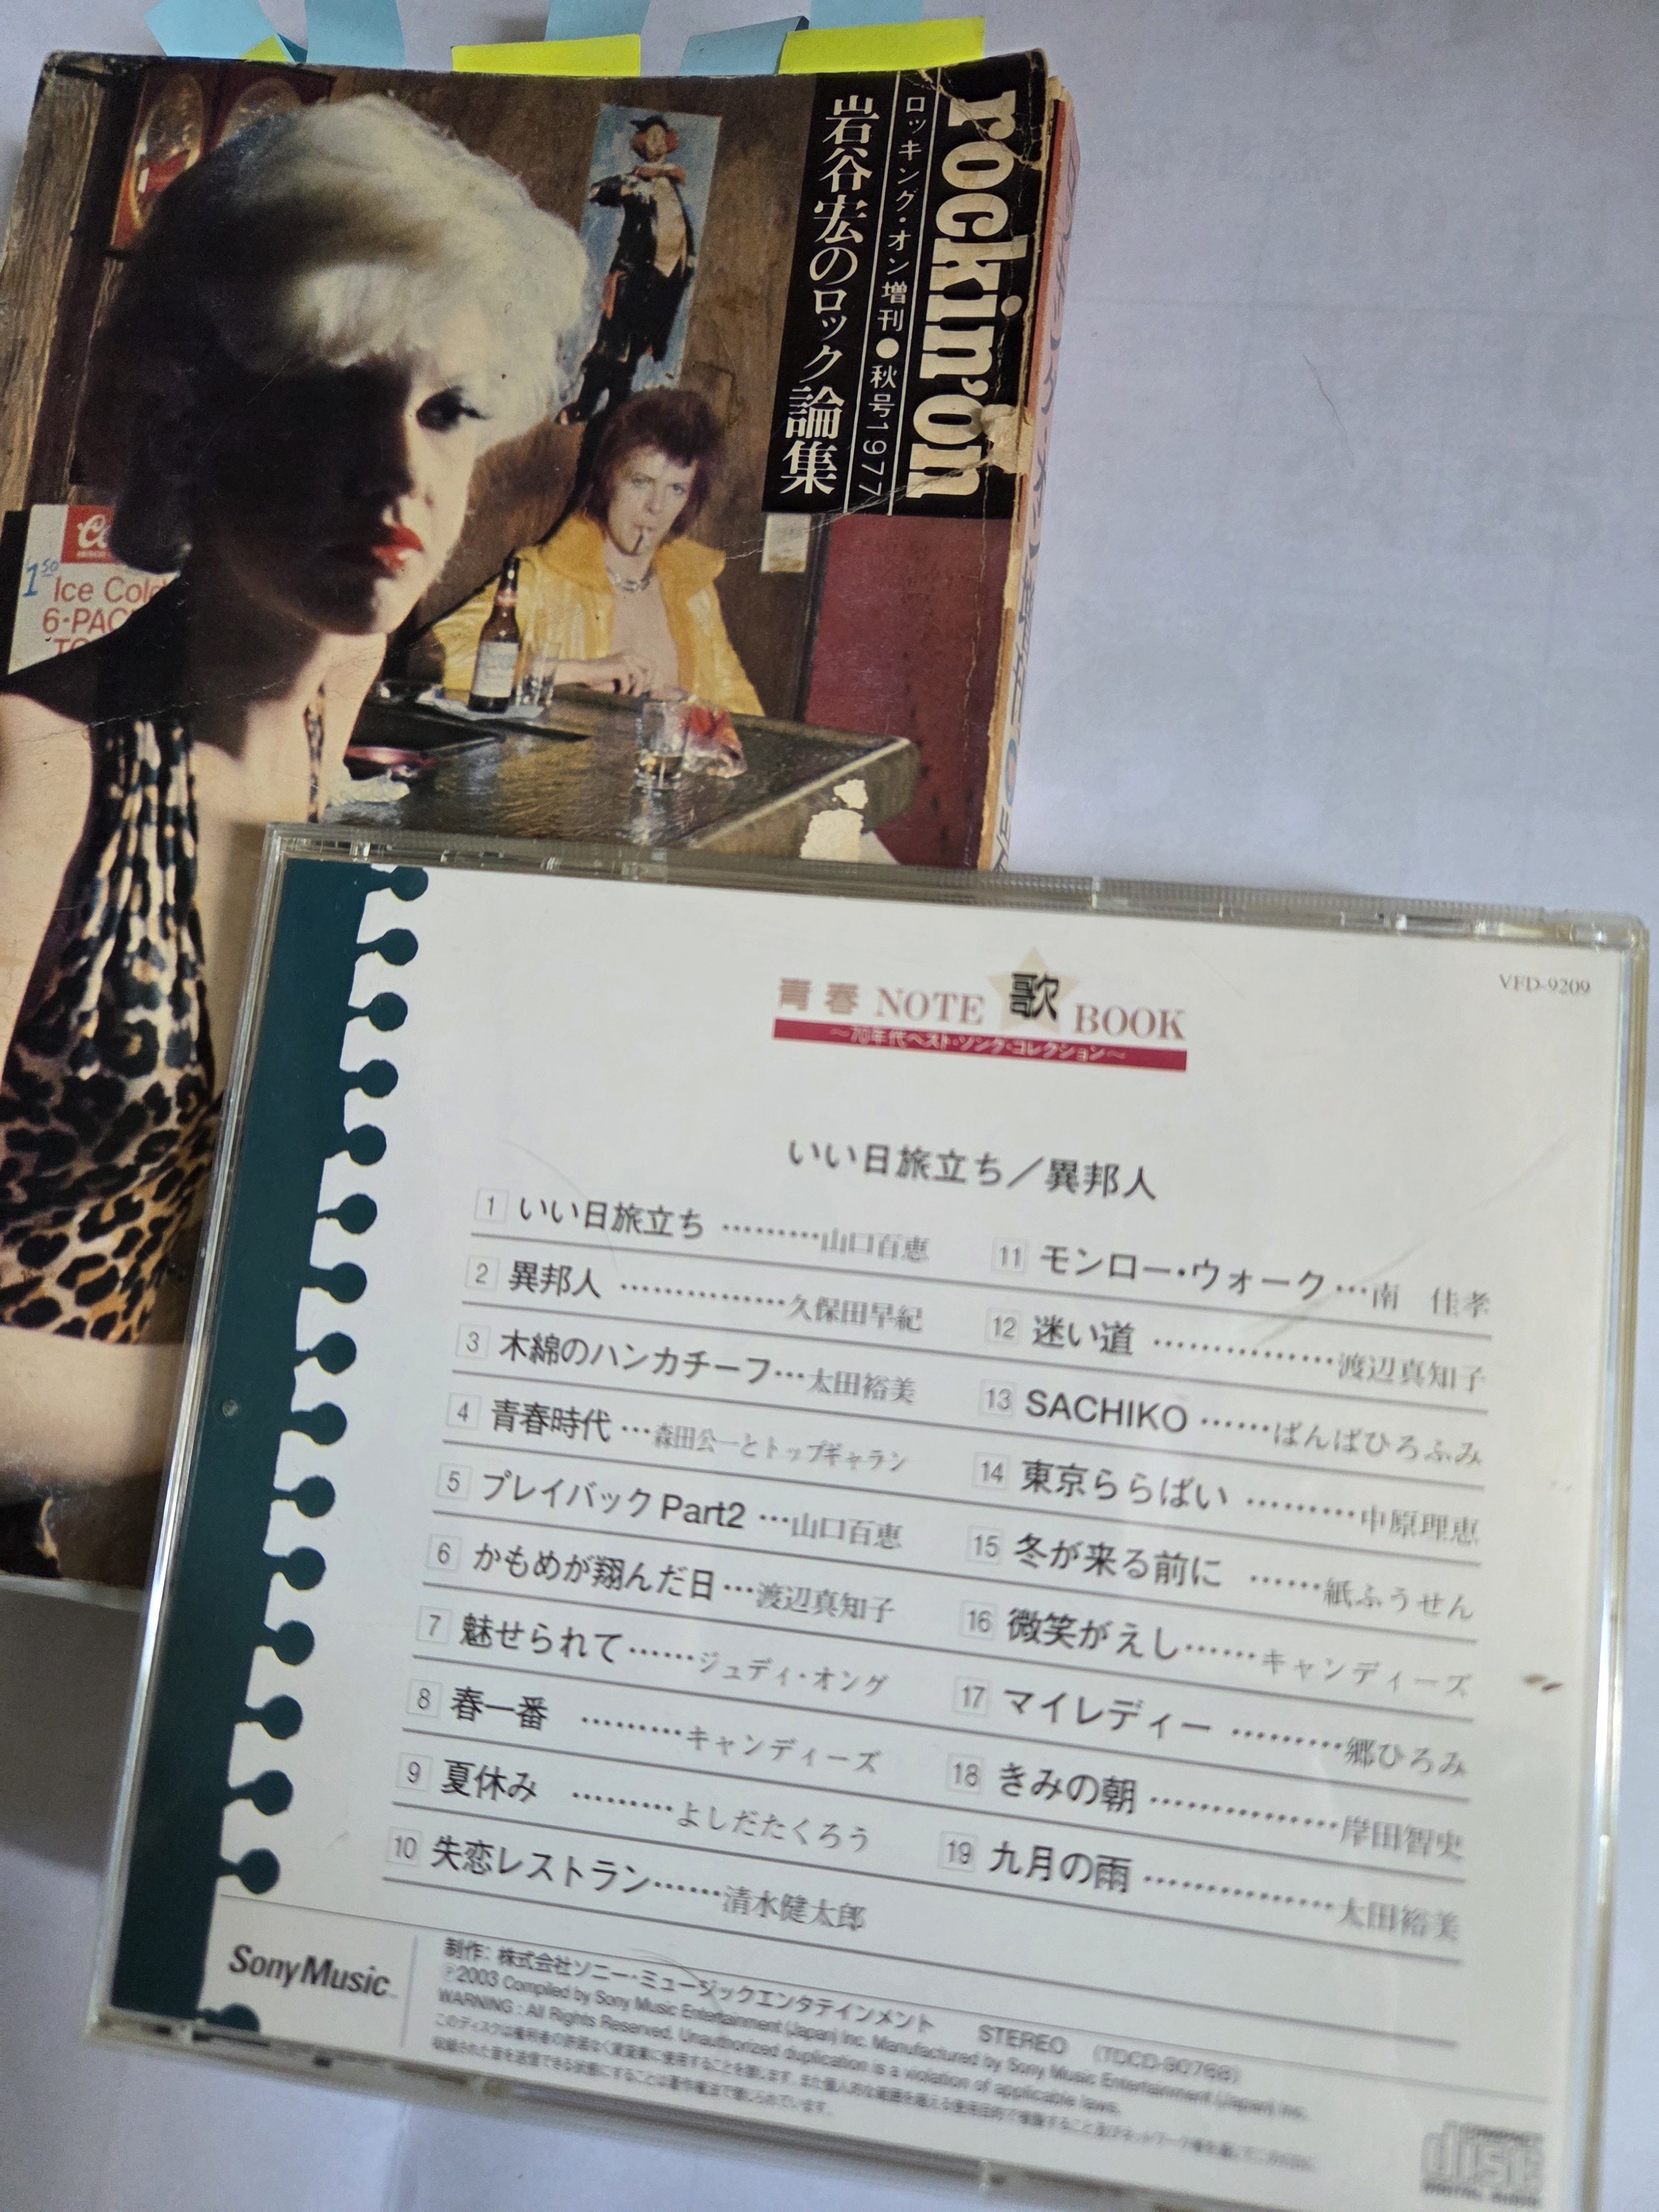 rockin'on
ロッキング・オン増刊●秋号1977
岩谷宏のロック論集
1.50
Ice Cold
6-PAC
VFD-9209
青春 NOTE 歌 BOOK
～70年代ベスト・ソング・コレクション～
いい日旅立ち／異邦人
1 いい日旅立ち ………山口百恵
2 異邦人 ……………久保田早紀
3 木綿のハンカチーフ…太田裕美
4 青春時代 …森田公一とトップギャラン
5 プレイバック Part2 …山口百恵
6 かもめが翔んだ日…渡辺真知子
7 魅せられて……ジュディ・オング
8 春一番 ………キャンディーズ
9 夏休み ………よしだたくろう
10 失恋レストラン……清水健太郎
11 モンロー・ウォーク…南 佳孝
12 迷い道 ……………渡辺真知子
13 SACHIKO ……ばんばひろふみ
14 東京ららばい ………中原理恵
15 冬が来る前に ……紙ふうせん
16 微笑がえし……キャンディーズ
17 マイレディー ………郷ひろみ
18 きみの朝 ……………岸田智史
19 九月の雨 ……………太田裕美
SonyMusic
制作：株式会社ソニー・ミュージックエンタテインメント STEREO (TDCD-90768)
℗2003 Compiled by Sony Music Entertainment (Japan) Inc. Manufactured by Sony Music Entertainment (Japan) Inc.
WARNING : All Rights Reserved. Unauthorized duplication is a violation of applicable laws.
このディスクは権利者の許諾なく賃貸業に使用することを禁じます。また個人的な範囲を超える使用目的で複製すること及び
収録された音を送信できる状態にすることは著作権法で禁じられています。
COMPACT
disc
DIGITAL AUDIO